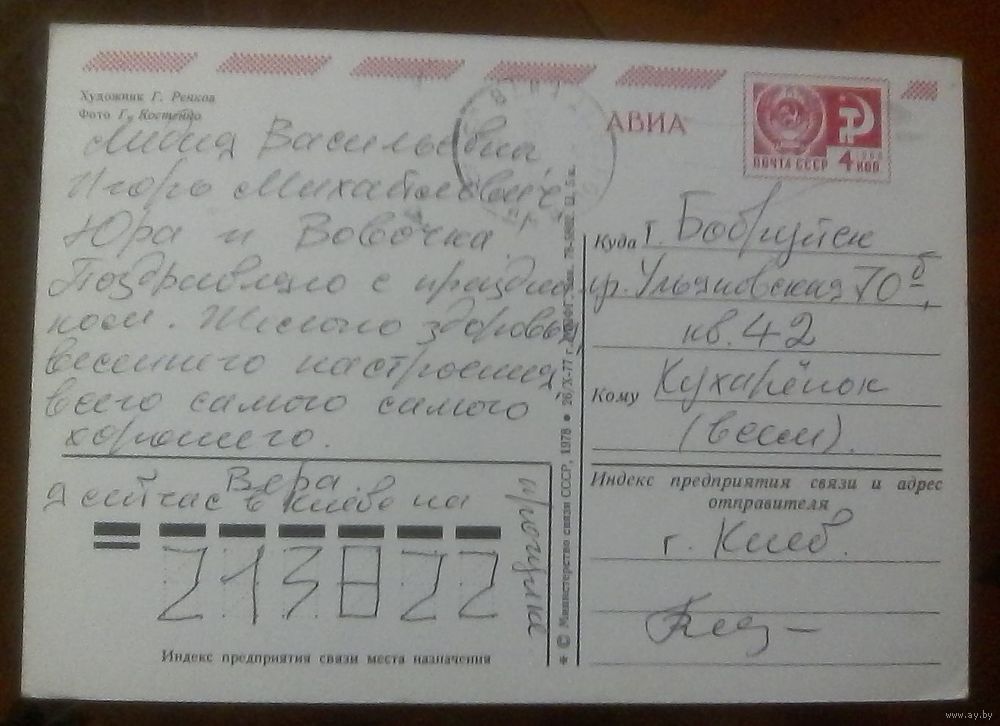 Художник Г. Ренков
Фото Г. Костенко
АВИА
ПОЧТА СССР 4 КОП
Лидия Васильевна
Игорь Михайлович,
Юра и Вовочка.
Поздравляю с праздни
ком. Желаю здоровья,
весеннего настроения,
всего самого самого
хорошего.
Вера.
Я сейчас в Киеве на
213822
Индекс предприятия связи места назначения
© Министерство связи СССР, 1978 ● 26/X-77 г.
Куда г. Бобруйск
ул. Ульяновская 70б,
кв. 42
Кому Кухарёнок
(всем).
Индекс предприятия связи и адрес
отправителя
г. Киев.
www.ay.by